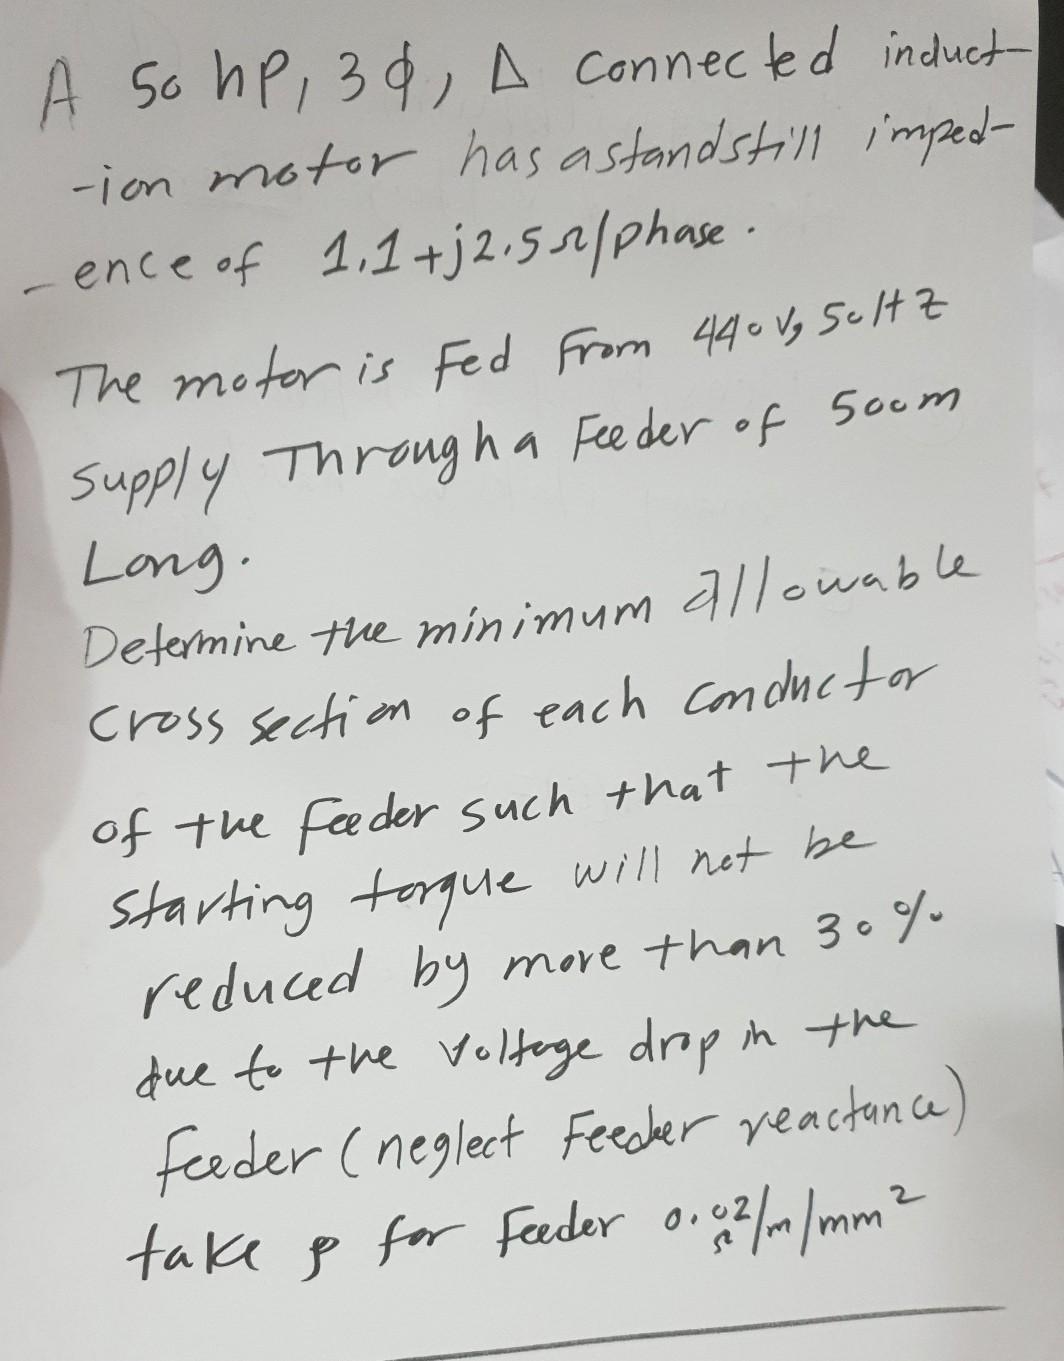 A 50 hp, 3ϕ, Δ connected induct-
-ion motor has a standstill imped-
-ence of 1.1+j2.5 Ω/phase.
The motor is Fed From 440V, 50HZ
supply Through a Feeder of 500m
Long.
Determine the minimum allowable
cross section of each conductor
of the feeder such that the
starting torque will not be
reduced by more than 30%
due to the voltage drop in the
feeder (neglect Feeder reactance)
take ρ for Feeder 0.02 Ω/m/mm²